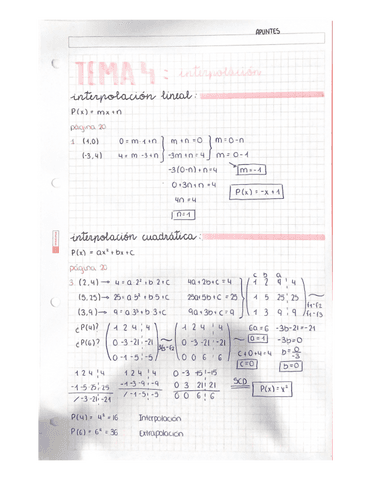 APUNTES
TEMA 4: interpolación
interpolación lineal:
P(x) = mx+n
página 20
1. (1,0) 0 = m·1+n } m+n=0 } m=0-n
(-3,4) 4 = m·-3+n } -3m+n=4 } m=0-1
-3(0-n)+n=4 m=-1
0+3n+n=4
P(x)=-x+1
4n=4
n=1
interpolación cuadrática:
P(x) = ax²+bx+c
página 20
c b a
3. (2,4) → 4=a·2²+b·2+c 4a+2b+c=4 ( 1 2 4 | 4
(5,25) → 25=a·5²+b·5+c 25a+5b+c=25 1 5 25 | 25
(3,9) → 9=a·3²+b·3+c 9a+3b+c=9 1 3 9 | 9 )
¿P(4)? ( 1 2 4 | 4 ( 1 2 4 | 4 6a=6 -3b-21=-21
¿P(6)? 0 -3 -21 | -21 0 -3 -21 | -21 a=1 -3b=0
0 -1 -5 | -5 ) 0 0 6 | 6 ) c+0+4=4 b=0/-3
c=0 b=0
1 2 4 4 1 2 4 | 4 0 -3 -15 | -15
-1 -5 -25 | -25 -1 -3 -9 | -9 0 3 21 | 21 SCD P(x)=x²
/ -3 -21 | -21 / -1 -5 | -5 0 0 6 | 6
P(4) = 4²=16 Interpolación
P(6) = 6²=36 Extrapolación